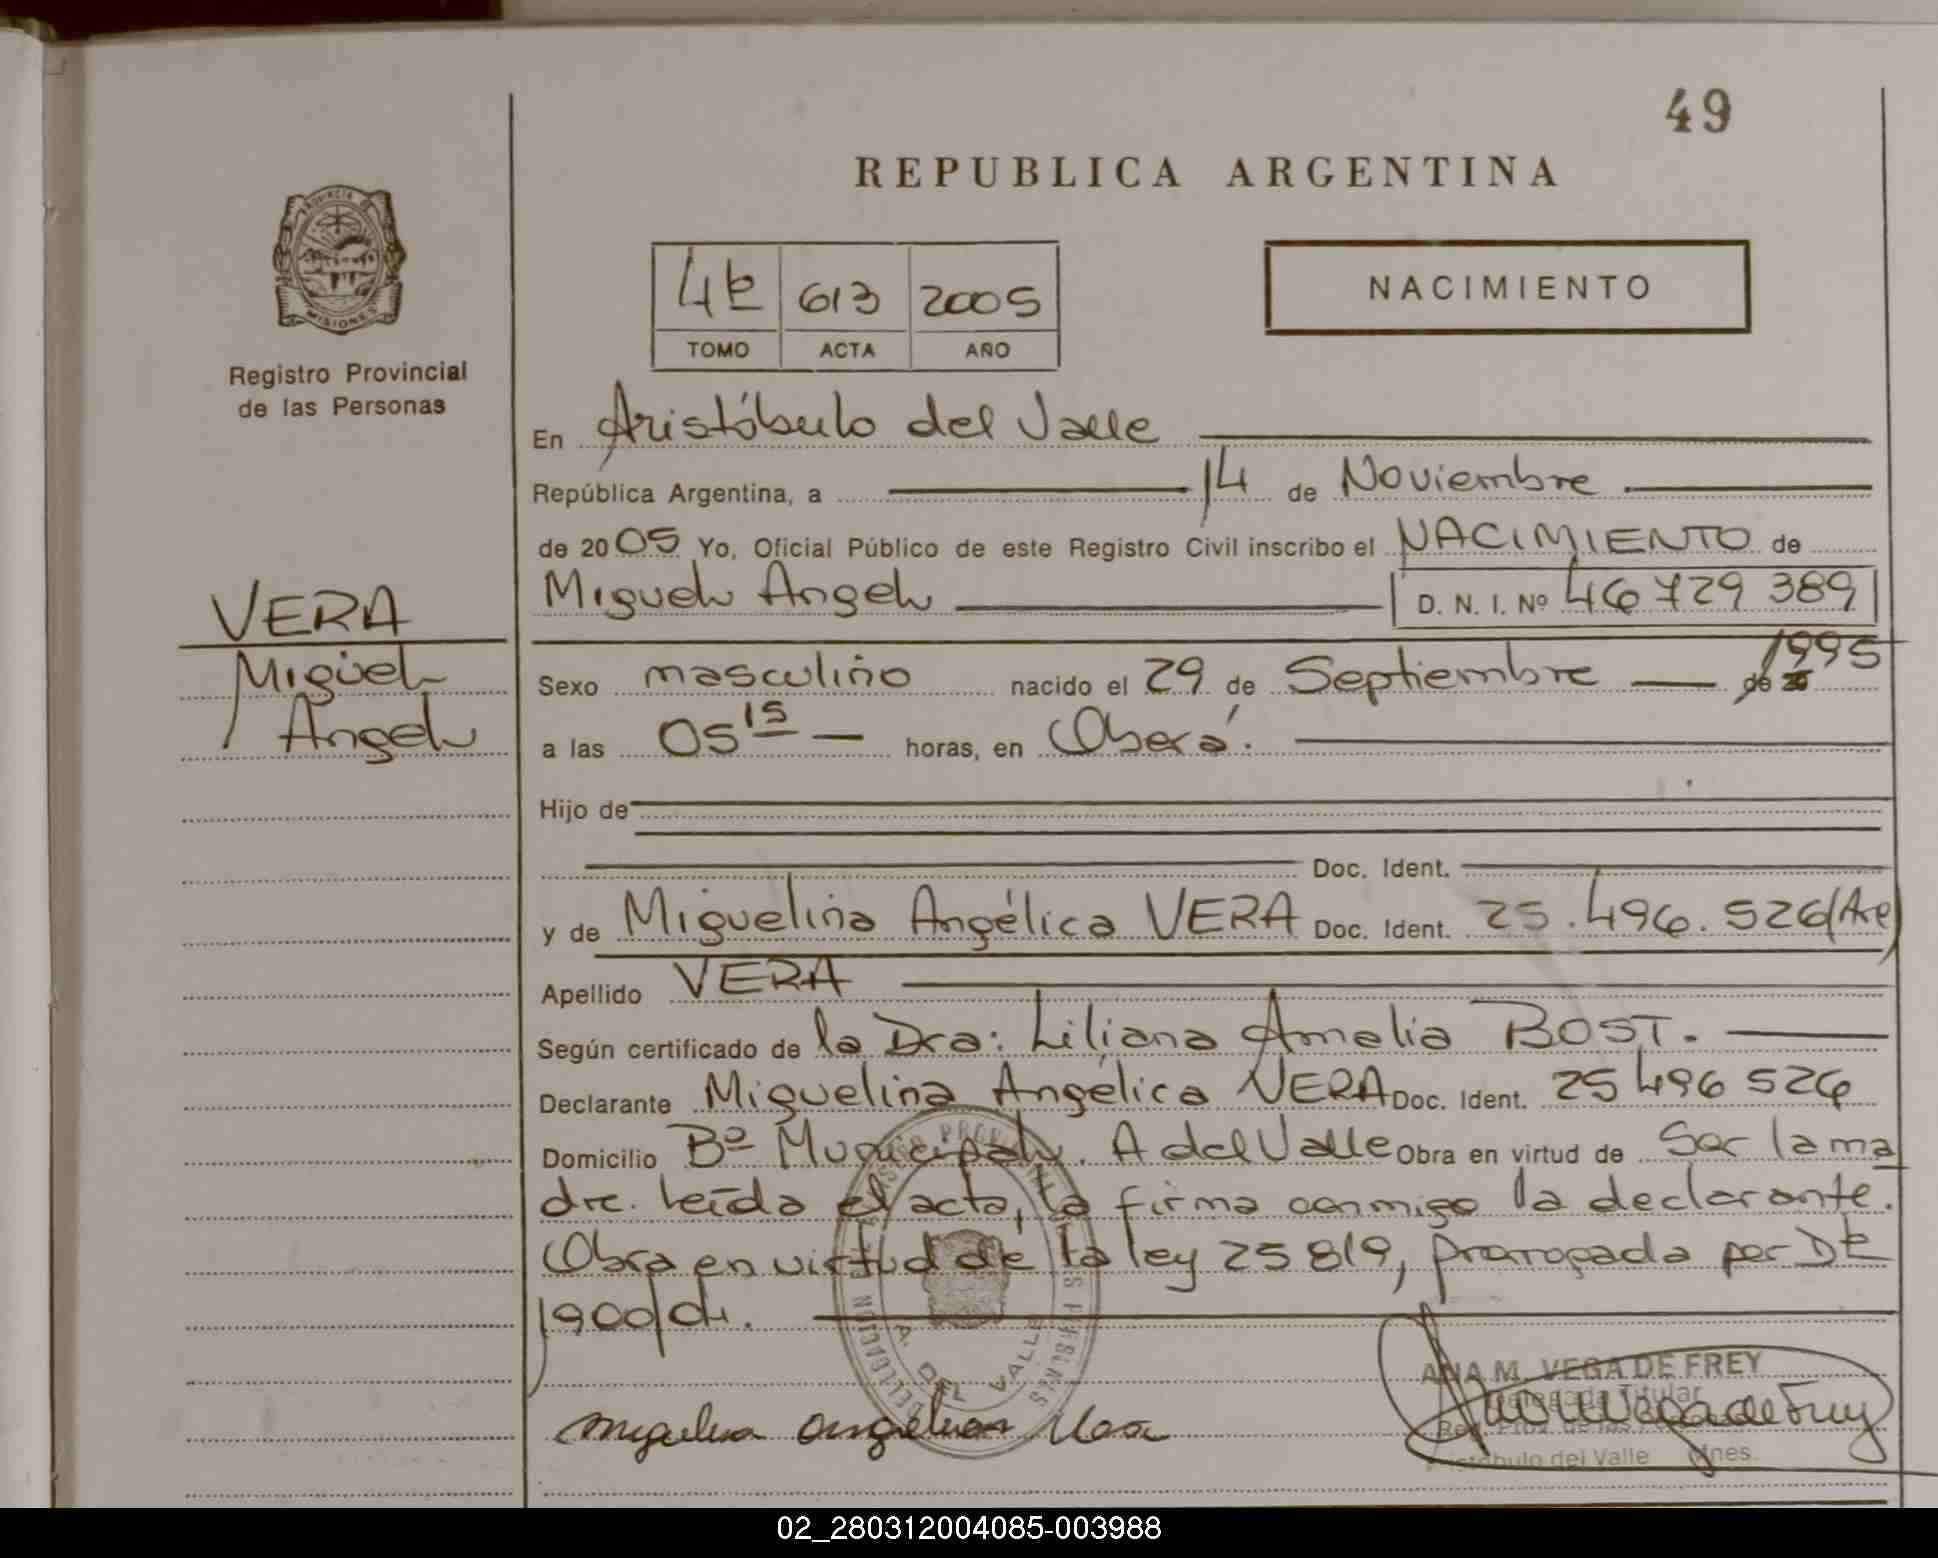 49
REPUBLICA ARGENTINA
PROVINCIA DE
MISIONES
Registro Provincial
de las Personas
4to 613 2005
TOMO ACTA AÑO
NACIMIENTO
En Aristóbulo del Valle
República Argentina, a 14 de Noviembre
de 2005 Yo, Oficial Público de este Registro Civil inscribo el NACIMIENTO de
Miguel Angel D. N. I. Nº 46 729 389
VERA
Miguel
Angel
Sexo masculino nacido el 29 de Septiembre 1995
a las 05 15 horas, en Oberá.
Hijo de
Doc. Ident.
y de Miguelina Angélica VERA Doc. Ident. 25.496.526
Apellido VERA
Según certificado de la Dra: Liliana Amalia BOST.
Declarante Miguelina Angélica VERA Doc. Ident. 25 496 526
Domicilio Bº Municipal. A del Valle Obra en virtud de Ser la ma
dre. leída el acta, la firma conmigo la declarante.
Obra en virtud de la ley 25 819, prorrogada por Dto
1900/04.
A. DEL VALLE
ANA M. VEGA DE FREY
Delegada Titular
Reg. Prov. de las
Aristóbulo del Valle Mnes.
02_280312004085-003988